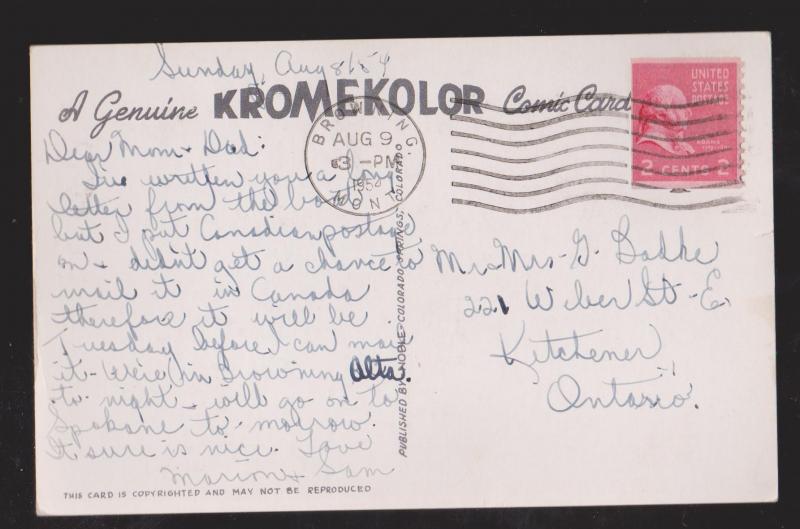 Sunday, Aug 8/54
A Genuine KROMEKOLOR Comic Card
UNITED
STATES
POSTAGE
ADAMS
2 CENTS 2
BROWNING.
AUG 9
3 - PM
1954
MONT.
Dear Mom & Dad:
I've written you a long
letter from the
but I put Canadian postage
on & didn't get a chance to
mail it in Canada
therefore it will be
Tuesday before I can mail
it - We're in Browning Alta.
to night - will go on to
Spokane to-morrow.
It sure is nice. Love
Marion & Sam
THIS CARD IS COPYRIGHTED AND MAY NOT BE REPRODUCED
PUBLISHED BY NOBLE - COLORADO SPRINGS, COLORADO
Mr Mrs G.
221 Weber St. E,
Kitchener,
Ontario.